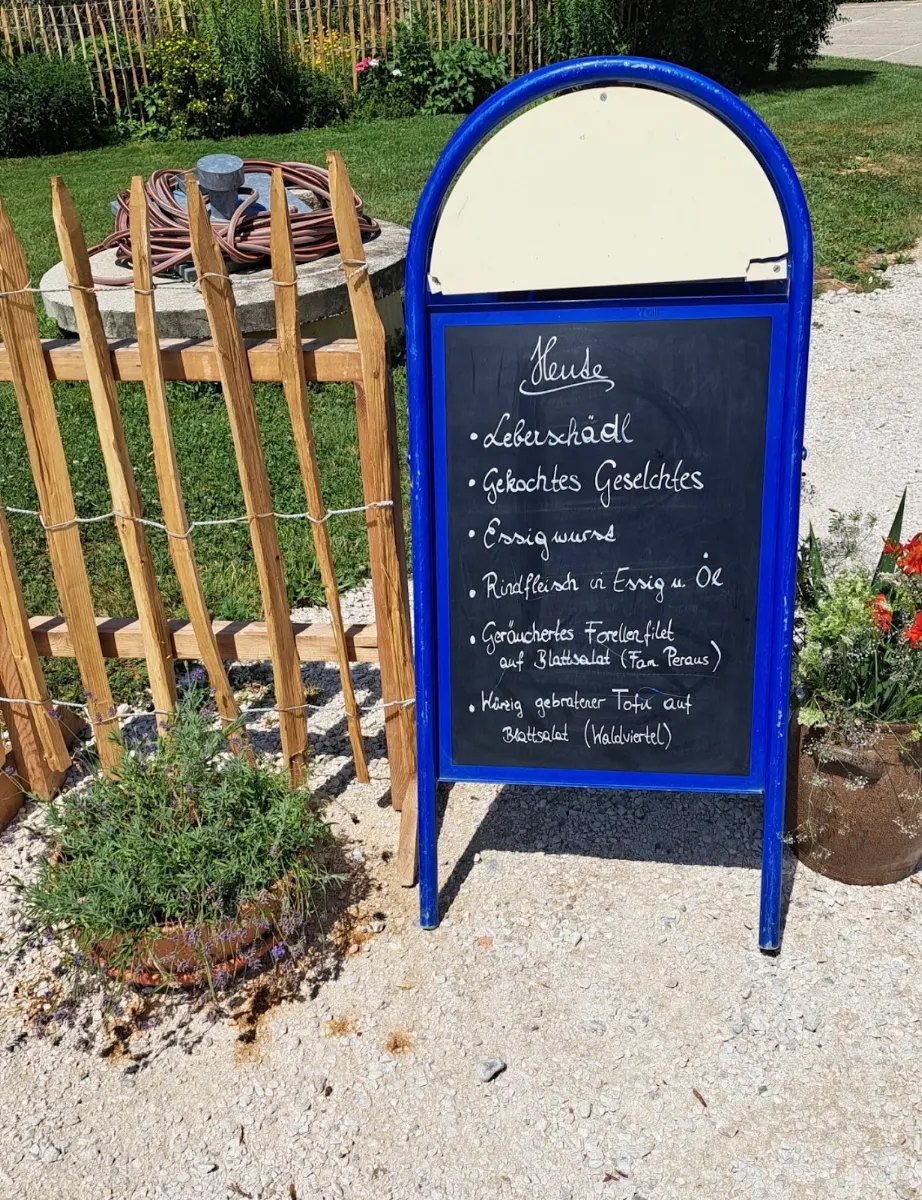 Heute
• Leberschädl
• Gekochtes Geselchtes
• Essigwurst
• Rindfleisch in Essig u. Öl
• Geräuchertes Forellenfilet
auf Blattsalat (Fam. Peraus)
• Würzig gebratener Tofu auf
Blattsalat (Waldviertel)